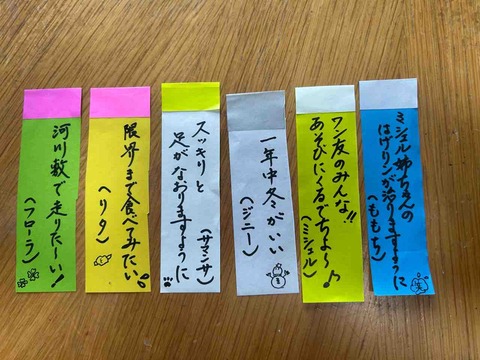 ミシェル姉ちゃんの
はげリンが治りますように
(ももち)
ワン友のみんな!!
あそびにくるでちよ〜♪
(ミシェル)
一年中冬がいい
(ジニー)
スッキリと
足がなおりますように
(サマンサ)
限界まで食べてみたい。
(リタ)
河川敷で走りた〜い!
(フローラ)